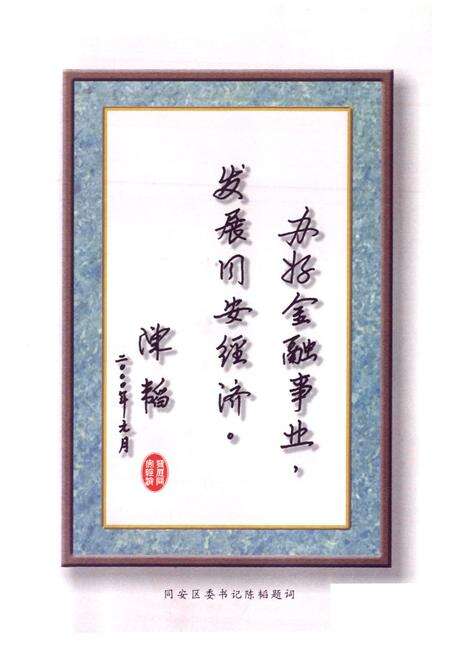 办好金融事业，
发展同安经济。
陳韬
二〇〇〇年元月
同安区委书记陈韬题词